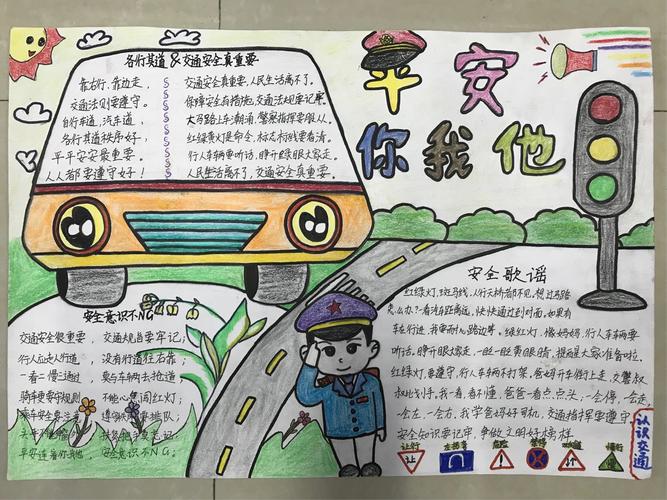 平安
你我他
各行其道&交通安全真重要
靠右行,靠边走,
交通法则要遵守。
自行车道,汽车道,
各行其道秩序好,
平平安安最重要。
人人都要遵守好!
交通安全真重要,人民生活离不了。
保障安全有措施,交通法规要记牢。
大马路上车潮涌,警察指挥要服从。
红绿黄灯是命令,标志标线要看清。
行人车辆要听话,睁开绿眼大家走。
人民生活离不了,交通安全真重要。
安全意识不NG
交通安全很重要,交通规当要牢记;
行人应走人行道,没有行道往右靠;
一看二慢三通过,要与车辆去抢道;
骑车更要守规则,不能心焦闯红灯;
乘车安全要注意,遵守秩序要排队;
扶好把手要忘记
平安连着你我他,安全意识不NG。
安全歌谣
红绿灯,斑马线,人行天桥都不见,想过马路
怎么办?看清车距离远,快快通过到对面,如果有
车在行进,我要耐心路边等。绿红灯,像妈妈,行人车辆要
听话。睁开眼大家走,一眨一眨黄眼睛,提醒大家准备啦,
红绿灯,要遵守,行人车辆不打架,爸妈开车街上走,交警叔
叔比划手,我一看,看不懂,爸爸一看点点头;一会停,一会走,
一会左,一会右,我学爸妈好司机,交通指挥要遵守,
安全知识要记牢,争做文明好榜样。
让行
让
危险
认识交通